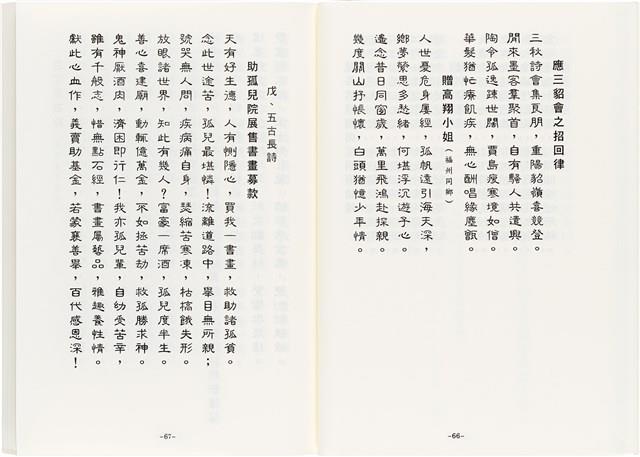 應三貂會之招回律
三秋詩會集良朋，重陽貂嶺喜競登。
閒來墨客羣聚首，自有騷人共遣興。
陶令孤逸踈世闊，賈島瘦寒境如僧。
華髮猶忙療飢疾，無心酬唱緣塵甑。
贈高翔小姐（福州同鄉）
人世憂危身屢經，孤帆遠引海天深，
鄉夢縈思多愁緒，何堪浮沉遊子心。
遙念昔日同窗歲，萬里飛鴻赴探親。
幾度關山抒帳懷，白頭猶憶少年情。
-66-
戊、五古長詩
助孤兒院展售書畫募款
天有好生德，人有惻隱心，買我一書畫，救助諸孤貧。
念此世途苦，孤兒最堪憐！流離道路中，舉目無所親；
號哭無人問，疾病痛自身，瑟縮苦寒凍，枯槁餓失形。
放眼諸世界，知此有幾人？富豪一席酒，孤兒度半生。
善心喜建廟，動輒億萬金，不如拯苦劫，救孤勝求神。
鬼神厭酒肉，濟困即行仁！我亦孤兒輩，自幼受苦辛，
雖有千般志，惜無點石經，書畫屬藝品，雅趣養性情。
獻此心血作，義賣助基金，若蒙襄善舉，百代感恩深！
-67-